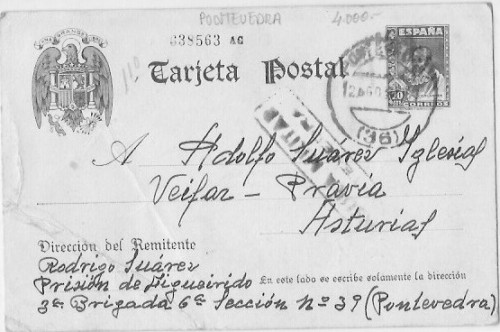 PONTEVEDRA 4.000.-
638563 AG
ESPAÑA
Tarjeta Postal
CORREOS
(36)
MILITAR
A Adolfo Suárez Iglesias
Veifar - Pravia
Asturias
Dirección del Remitente
Rodrigo Suárez
Prisión de Figueirido
En este lado se escribe solamente la dirección
3ª Brigada 6ª Sección Nº 39 (Pontevedra)